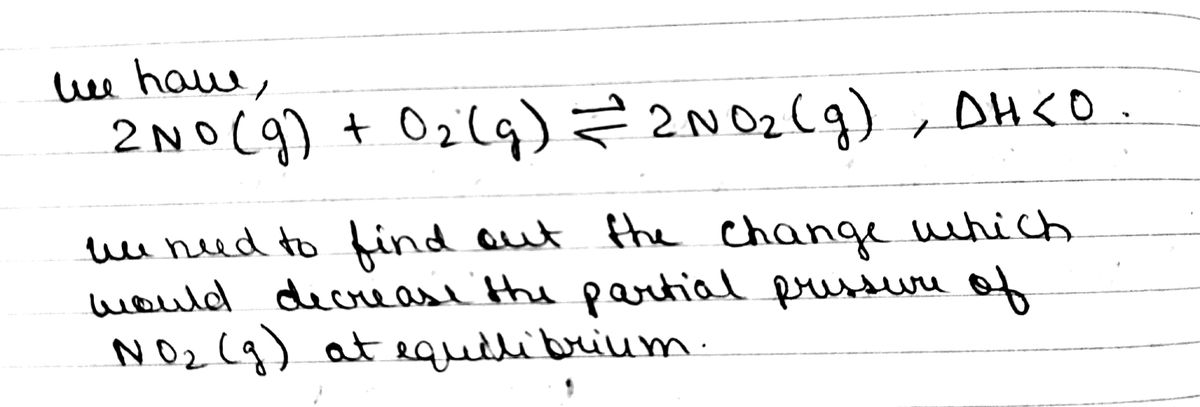 we have,
2NO(g) + O₂(g) ⇌ 2NO₂(g) , ΔH<0 .
we need to find out the change which
would decrease the partial pressure of
NO₂ (g) at equilibrium.